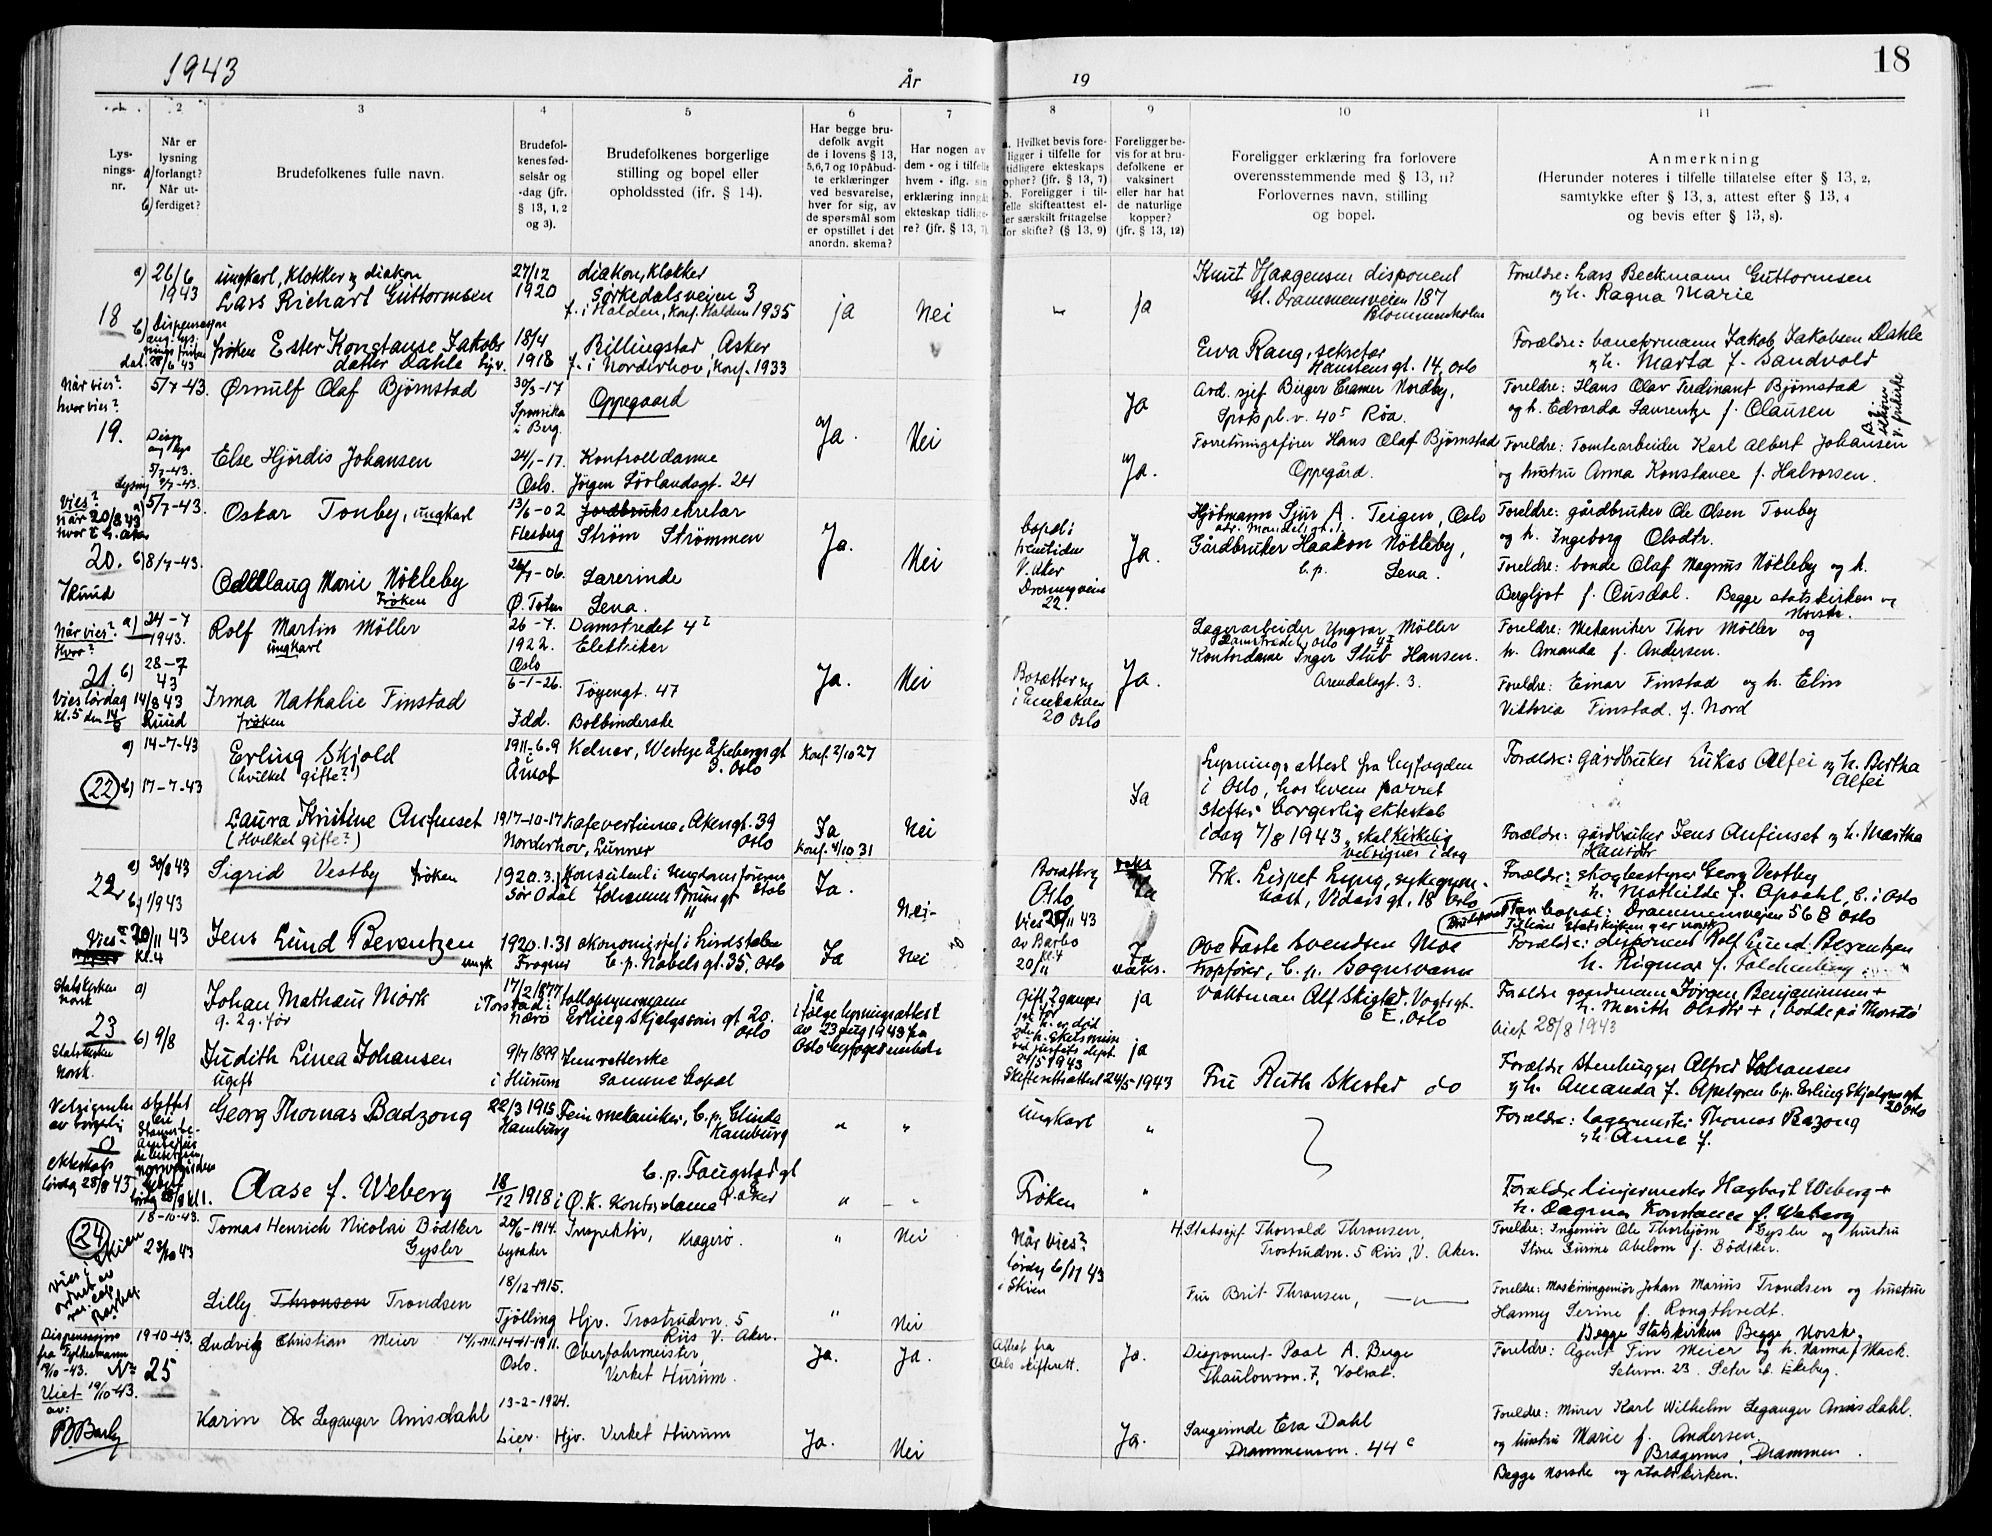 1943
År
19
18
2
3
4
5
6
7
8
9
10
11
Lys-
nings-
nr.
Når er
lysning
forlangt?
Når ut-
ferdiget?
Brudefolkenes fulle navn.
Brudefol-
kenes fød-
selsår og
-dag (jfr.
§ 13, 1, 2
og 3).
Brudefolkenes borgerlige
stilling og bopel eller
opholdssted (ifr. § 14).
Har begge bru-
defolk avgit
de i lovens § 13,
5,6,7 og 10 påbud-
te erklæringer
ved besvarelse,
hver for sig, av
de spørsmål som
er opstillet i det
anordn. skema?
Har nogen av
dem - og i tilfelle
hvem - iflg. sin
erklæring inngåt
ekteskap tidlige-
re? (jfr. § 13, 7)
a. Hvilket bevis fore-
ligger i tilfelle for
tidligere ekteskaps
ophør? (jfr. § 13, 7)
b. Foreligger i til-
felle skifteattest el-
ler særskilt fritagelse
for skifte? (§ 13, 9)
Foreligger be-
vis for at bru-
defolkene er
vaksinert
eller har hat
de naturlige
kopper?
(jfr. § 13, 12)
Foreligger erklæring fra forlovere
overensstemmende med § 13, 11?
Forlovernes navn, stilling
og bopel.
Anmerkning
(Herunder noteres i tilfelle tillatelse efter § 13, 2,
samtykke efter § 13, 3, attest efter § 13, 4
og bevis efter § 13, 8).
18
a) 26/6
1943
ungkarl, Klokker og diakon
Lars Richart Guttormsen
27/12
1920
diakon, Klokker
Sørkedalsveien 3
f. i Halden, Konf. Halden 1935
ja
Nei
ja
Knut Haagensen disponent
Gl. Drammensveien 187
Blommenholm
Foreldre: Lars Beckmann Guttormsen
og h. Ragna Marie
b) Dispensasjon
frøken Ester Konstanse Jakobs
datter Dahle hjv.
18/4
1918
Billingstad, Asker
f. i Norderhov, Konf. 1933
Ewa Rang, sekretær
Haustensgt. 14, Oslo
Forældre: baneformann Jakob Jakobsen Dahle
og h. Marta f. Sandvold
Når vies?
hvor vies?
19.
5/7-43.
Ørnulf Olaf Bjørnstad
30/3-17
Sponvika
i Berg.
Oppegaard
Ja.
Nei
Ja
Avd. sjef Birger Cramer Nordby,
Sportspl. v. 40 Røa.
Foreldre: Hans Olav Ferdinant Bjørnstad
og h. Edvarda Laurentze f. Olausen
5/7-43.
Lysing 9/7-43.
Else Hjördis Johansen
24/1-17.
Oslo.
Kontrolldame
Jörgen Løvlandsgt. 24
Ja.
Forretningsfører Hans Olaf Bjørnstad
Oppegård.
Foreldre: Tomtearbeider Karl Albert Johansen
og hustru Anna Konstance f. Halvorsen.
Vies?
når 20/8 43
20.
a) 5/7-43.
Oskar Tonby, ungkarl
13/6-02
Flesberg
Jordbruksekretær
Strøm Strømmen
Ja.
Nei
bopel:
fremtiden
V. Aker
22.
Ja.
Sjur A. Teigen, Oslo
Gårdbruker Haakon Nökleby,
b.p. Lena.
Foreldre: gårdbruker Ole Olsen Tonby
og h. Ingeborg Olsdtr.
b) 8/7-43.
Oddlaug Marie Nökleby
Frøken
-06.
Ø. Toten
Lærerinde
Lena.
Foreldre: bonde Olaf Magnus Nökleby og h.
Bergljot f. Ousdal. Begge statskirken og
Norske.
Når vies?
Hvor?
21.
a) 24-7
1943.
Rolf Martin Möller
ungkarl
26-7.
1922.
Oslo
Damstredet 4
Elektriker
Ja.
Nei
Bosætter seg
i Enebakkvn
20 Oslo
Ja.
Lagerarbeider Yngvar Möller
Damstredet, Oslo
Kontordame Inger Stub Hansen.
Arendalsgt. 3.
Foreldre: Mekaniker Thor Möller og
h. Amanda f. Andersen.
b) 28-7
43
Vies lördag 14/8 43
kl. 5 den 14/8 Ruud
Irma Nathalie Finstad
frøken
6-1-26.
Idd.
Töyengt. 47
Bokbinderske
Foreldre: Einar Finstad og h. Elin
Viktoria Finstad. f. Nord
22
a) 14-7-43
Erling Skjold
(hvilket gifte?)
1911-6-9
Åmot
Kelner, Westye Egebergsgt
3. Oslo
Konf. 2/10 27
Ja
Lysningsattest fra byfogden
i Oslo, hos hvem parret
stifter borgerlig ekteskab
idag 7/8 1943, skal kirkelig
velsignes idag
Forældre: gårdbruker Lukas Alfei og h. Bertha
Alfei
b) 17-7-43
Laura Kristine Anfinset
(Hvilket gifte?)
1917-10-17
Norderhov, Lunner
Kafevertinne, Akersgt. 39
Oslo
Ja
Konf. 4/10 31
Nei
Forældre: gårdbruker Jens Anfinset og h. Martha
22
a) 30/8 43
b) 1/9 43
Sigrid Vestby frøken
1920.3.1
Sør Odal
Konsulent i Ungdomsførerens
Stab
Johannes Brunsgt
Ja.
Nei-
Bosætting
Oslo
Vies 20/11 43
av Barbo
20/11
Ja
Frk. Lispet Lyng, sykegym-
nast, Vidarsgt. 18 Oslo
Forældre: skogbestyrer Georg Vestby
h. Mathilde f. Opsahl, b. i Oslo
Drammensveien 56 B Oslo
Vies? 20/11 43
kl. 4
Jens Lund Berentzen
ungk
1920.1.31
Frogner
økonomisjef i Hirdstaben
b.p. Nobelsgt. 35, Oslo
Ja
Nei
Ja
vaks.
Ove Faste Svendsen Moe
troppfører, b.p. Sognsvann
Forældre: disponent Rolf Lund Berentzen
h. Rigmor f. Falchenberg
Statskirken
norsk
23
a)
Johan Mathæus Mörk
g. 2g. før
17/2 1877
i Torstad?
Nærø
Tollopsynsmann
Erling Skjalgssøns gt 20.
Oslo
ja
ifølge lysningsattest
av 23 aug 1943 fra
Oslo byfogdembede
Gift 2 ganger
før
24/5 1943
Skifteattest 24/5 1943
ja
Vaktman Alf Skistad, Vogtsgt.
6 E. Oslo
Forældre gaardmann Jörgen Benjaminsen +
h. Marith Olsdtr +
viet 28/8 1943
b) 9/8
Statskirken
Norsk.
Judith Linea Johansen
Ugift
9/7 1899
i Hurum
samme bopæl
ja
Fru Ruth Skistad do
Forældre Stenhugger Alfred Johansen
og h. Amanda f. Apelgren b.p. Erling Skjalgsøns gt
20 Oslo
Velsignelse
av borgerlig
0
ekteskap
lördag 28/8 43
Georg Thomas Badzong
22/3 1915
Hamburg
Fein mekaniker, b.p. Elinde
Hamburg
"
"
Ungkarl
"
Forældre: Lagermester Thomas Bazong
og h. Anne f.
Aase f. Weberg
18/12 1918 i
b.p. Faugstadgt
Ø.K. Kontordame
"
Frøken
"
Forældre Linjemester Hagbart Weberg +
h. Dagmar Konstanse f. Weberg
24
18-10-43.
23/10 43
Tomas Henrich Nicolai Bödtker
Gysler
20/6-1914.
Lysaker
Inspektör, Kragerø.
"
Nei
Når vies?
lördag 6/11 43
i Skien
Statssjef. Thorvald Thronsen,
Trostrudvn. 5 Riis, V. Aker.
Foreldre: Ingeniör Ole Thorbjörn Gysler og hustru
Stine Gurine Abelone f. Bödtker.
Lilly Thronsen Trondsen
18/12-1915.
Tjölling
Hjv. Trostrudvn. 5
Riis V. Aker.
"
Nei
Fru Brit Thronsen,
Foreldre: Maskiningeniör Johan Marius Trondsen og hustru
Hanny Serine f. Rongthvedt.
Begge Statskirken Begge Norske.
Dispensasjon
fra Fylkesmann
19/10-43. No
25
Viet 19/10-43.
av:
19-10-43.
Ludvig Christian Meier
14-11-1911.
Oslo.
Oberfahrmeister,
Verket Hurum.
Ja.
Ja.
Attest fra
Oslo skifterett.
Ja.
Disponent Paal A. Berge
Thaulowsvn. 7, Volvat.
Foreldre: Agent Tin Meier og h. Nanna f. Mack.
Setervn. 23. Seter st. Ekeberg.
Karin Leganger Amisdahl
13-2-1924.
Lier.
Hjv. Verket Hurum
Ja.
Nei
Ja.
Sangerinde Eva Dahl
Drammensvn. 44 c
Foreldre: Murer Karl Wilhelm Leganger Amisdahl.
og hustru Marie f. Andersen.
Bragernes, Drammen.
Begge Norske og statskirken.